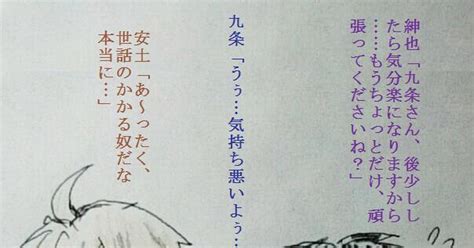 紳也「九条さん、後少しし
たら気分楽になりますから
……もうちょっとだけ、頑
張ってくださいね?」
九条「うぅ…気持ち悪いよぅ…
安土「あ〜ったく、
世話のかかる奴だな
本当に…」